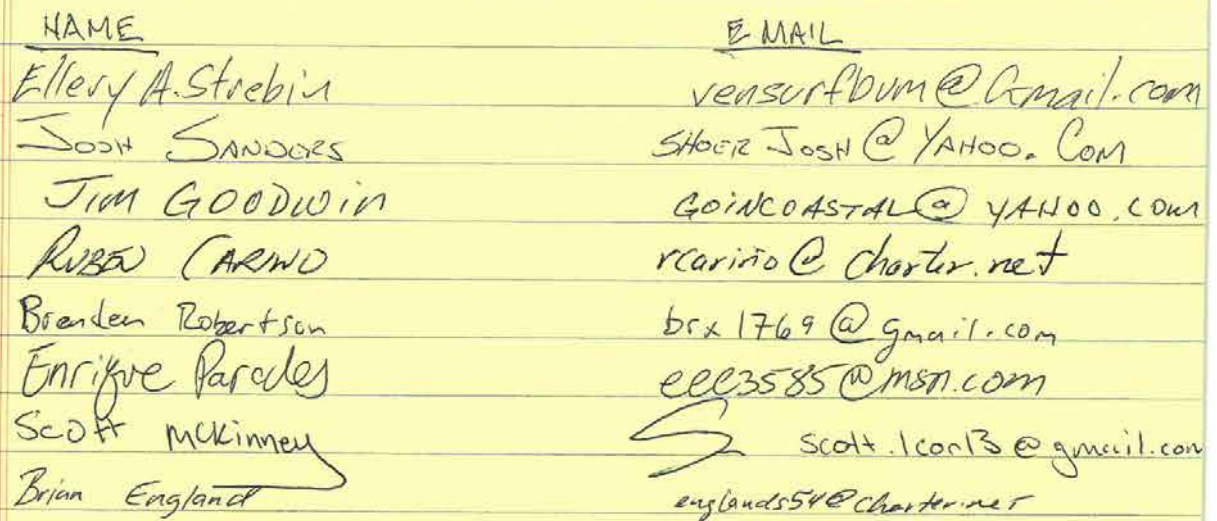 NAME EMAIL
Ellery A. Strebin vensurfbum@Gmail.com
JOSH SANDERS SHOER JOSH@YAHOO.COM
JIM GOODWIN GOINCOASTAL@YAHOO.COM
RUBEN CARINO rcariño@charter.net
Brenden Robertson brx1769@gmail.com
Enrique Paredes eee3585@msn.com
Scott McKinney @gmail.com
Brian England englands54@charter.net